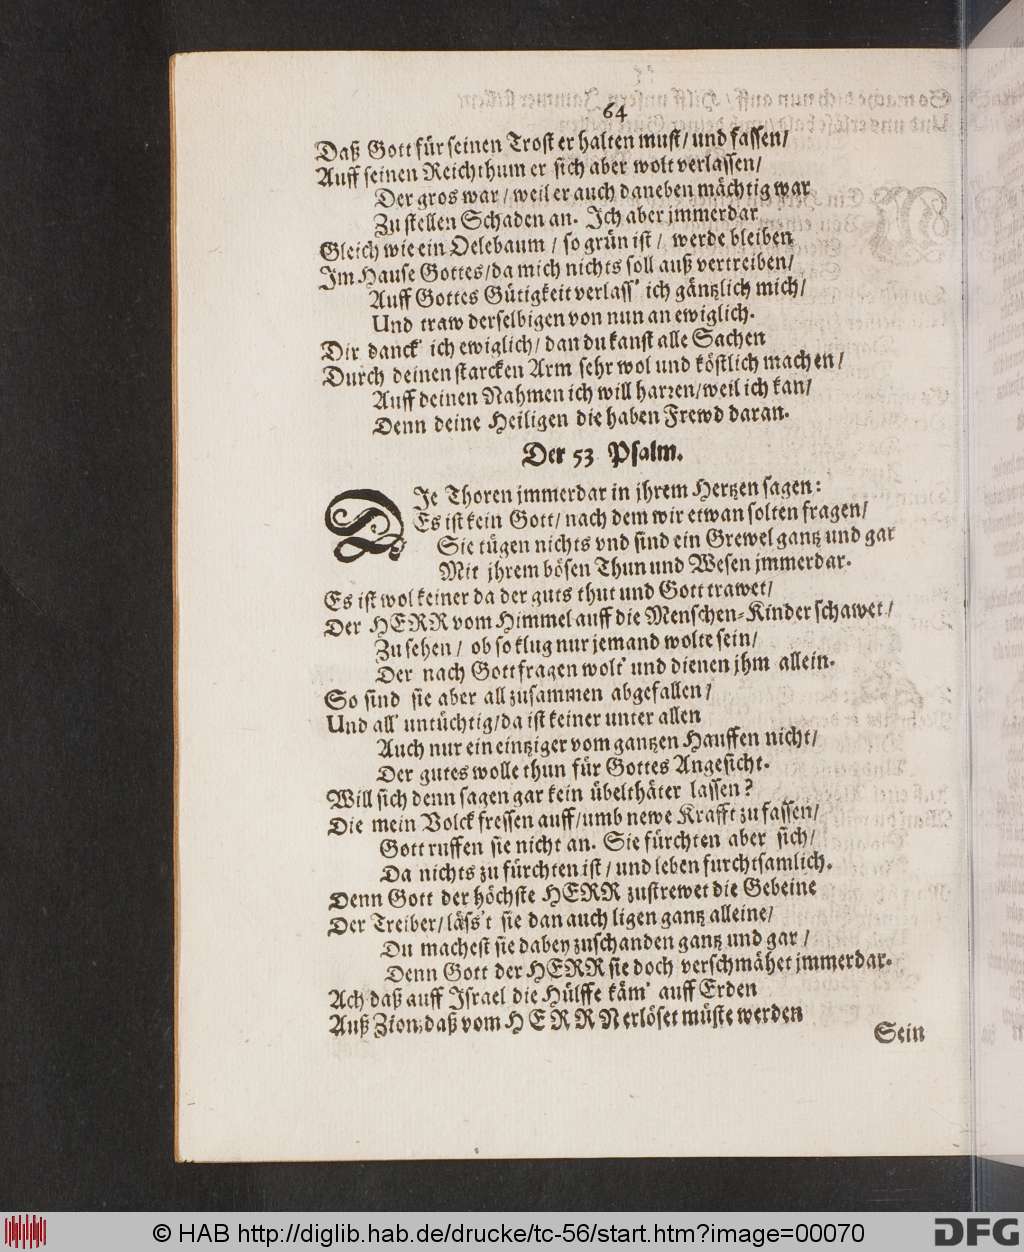 64
Daß Gott für seinen Trost er halten must/ und fassen/
Auff seinen Reichthum er sich aber wolt verlassen/
Der gros war/ weil er auch daneben mächtig war
Zu stellen Schaden an. Ich aber jmmerdar
Gleich wie ein Oelebaum/ so grün ist/ werde bleiben
Im Hause Gottes/ da mich nichts soll auß vertreiben/
Auff Gottes Gütigkeit verlass' ich gäntzlich mich/
Und traw derselbigen von nun an ewiglich.
Dir danck' ich ewiglich/ dan du kanst alle Sachen
Durch deinen starcken Arm sehr wol und köstlich machen/
Auff deinen Nahmen ich will harren/ weil ich kan/
Denn deine Heiligen die haben Frewd daran.
Der 53 Psalm.
DIe Thoren jmmerdar in jhrem Hertzen sagen:
Es ist kein Gott/ nach dem wir etwan solten fragen/
Sie tügen nichts vnd sind ein Grewel gantz und gar
Mit jhrem bösen Thun und Wesen jmmerdar.
Es ist wol keiner da der guts thut und Gott trawet/
Der HERR vom Himmel auff die Menschen-Kinder schawet/
Zu sehen/ ob so klug nur jemand wolte sein/
Der nach Gott fragen wolt' und dienen jhm allein.
So sind sie aber all zusammen abgefallen/
Und all' untüchtig/ da ist keiner unter allen
Auch nur ein eintziger vom gantzen Hauffen nicht/
Der gutes wolle thun für Gottes Angesicht.
Will sich denn sagen gar kein übelthäter lassen?
Die mein Volck fressen auff/ umb newe Krafft zu fassen/
Gott ruffen sie nicht an. Sie fürchten aber sich/
Da nichts zu fürchten ist/ und leben furchtsamlich.
Denn Gott der höchste HERR zustrewet die Gebeine
Der Treiber/ läss't sie dan auch ligen gantz alleine/
Du machest sie dabey zuschanden gantz und gar/
Denn Gott der HERR sie doch verschmähet jmmerdar.
Ach daß auff Israel die Hülffe käm' auff Erden
Auß Zion/ daß vom HERRN erlöset müste werden
Sein
© HAB http://diglib.hab.de/drucke/tc-56/start.htm?image=00070
DFG